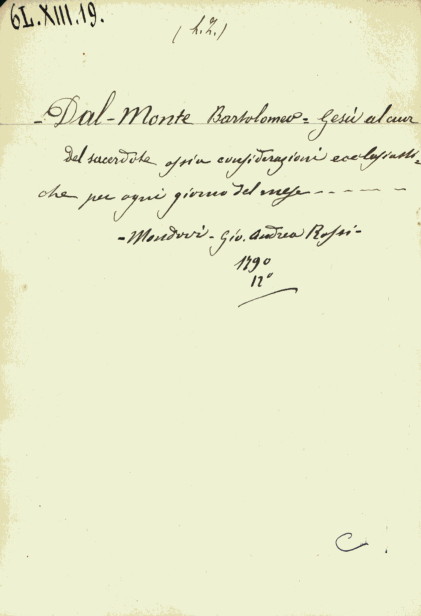 6L.XIII.19.
-Dal-Monte Bartolomeo= Gesù al cuor
del sacerdote ossia considerazioni ecclesiasti=
che per ogni giorno del mese - - - - -
-Mondovì- Gio. Andrea Rossi-
1790
12°
C.